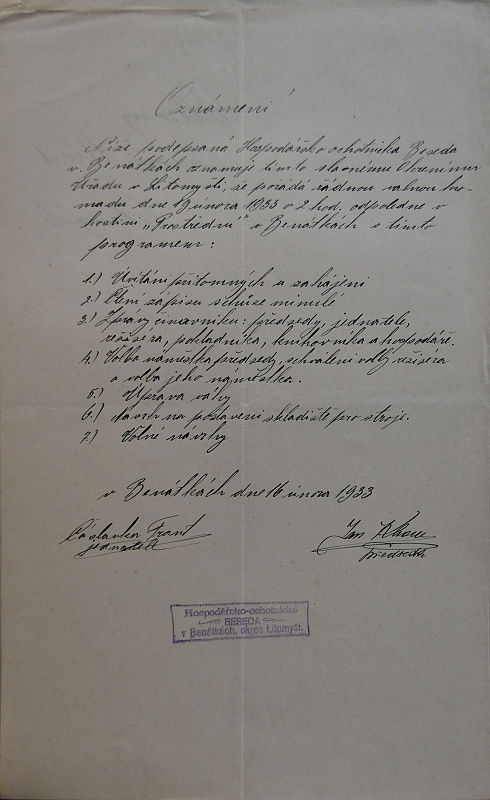 Oznámení
Níže podepsaná Hospodářsko ochotnická Beseda
v Benátkách oznamuje tímto slavnému Okresnímu
Úřadu v Litomyšli, že pořádá řádnou valnou hro-
madu dne února 1933 o 2 hod. odpoledne v
hostinci „Prostřední" v Benátkách s tímto
programem:
1.) Uvítání přítomných a zahájení
2.) Čtení zápisu schůze minulé
3.) Zprávy činovníků: předsedy, jednatele,
režiséra, pokladníka, knihovníka a hospodáře.
4.) Volba náměstka předsedy, schválení volby režiséra
a volba jeho náměstka.
5.) Úprava váhy
6.) Návrh na postavení skladiště pro stroje.
7.) Volné návrhy
v Benátkách dne 16 února 1933
Čáslavka Frant Jan
jednatel předseda
Hospodářsko-ochotnická
BESEDA
v Benátkách, okres Litomyšl.